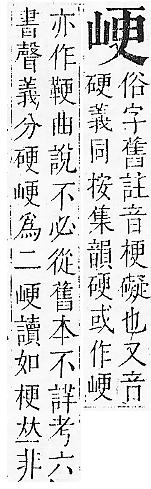 峺
俗字舊註音梗礙也又音
硬義同按集韻硬或作峺
亦作鞕曲說不必從舊本不詳考六
書聲義分硬峺爲二峺讀如梗𠀤非